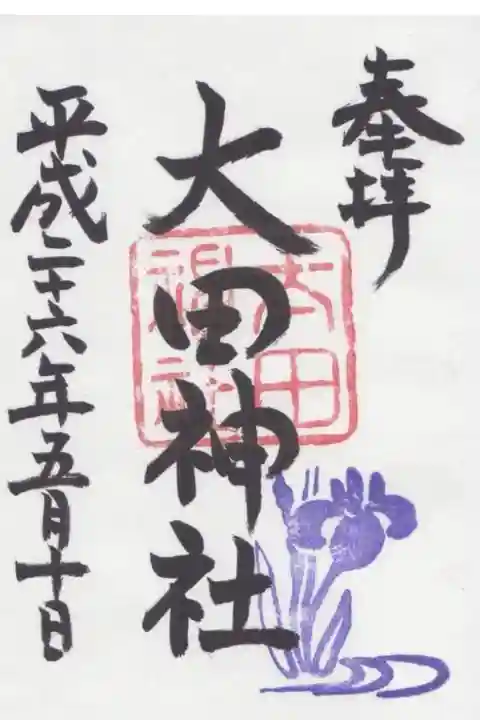 奉拝
大田神社
平成二十六年五月十日
大田
神社